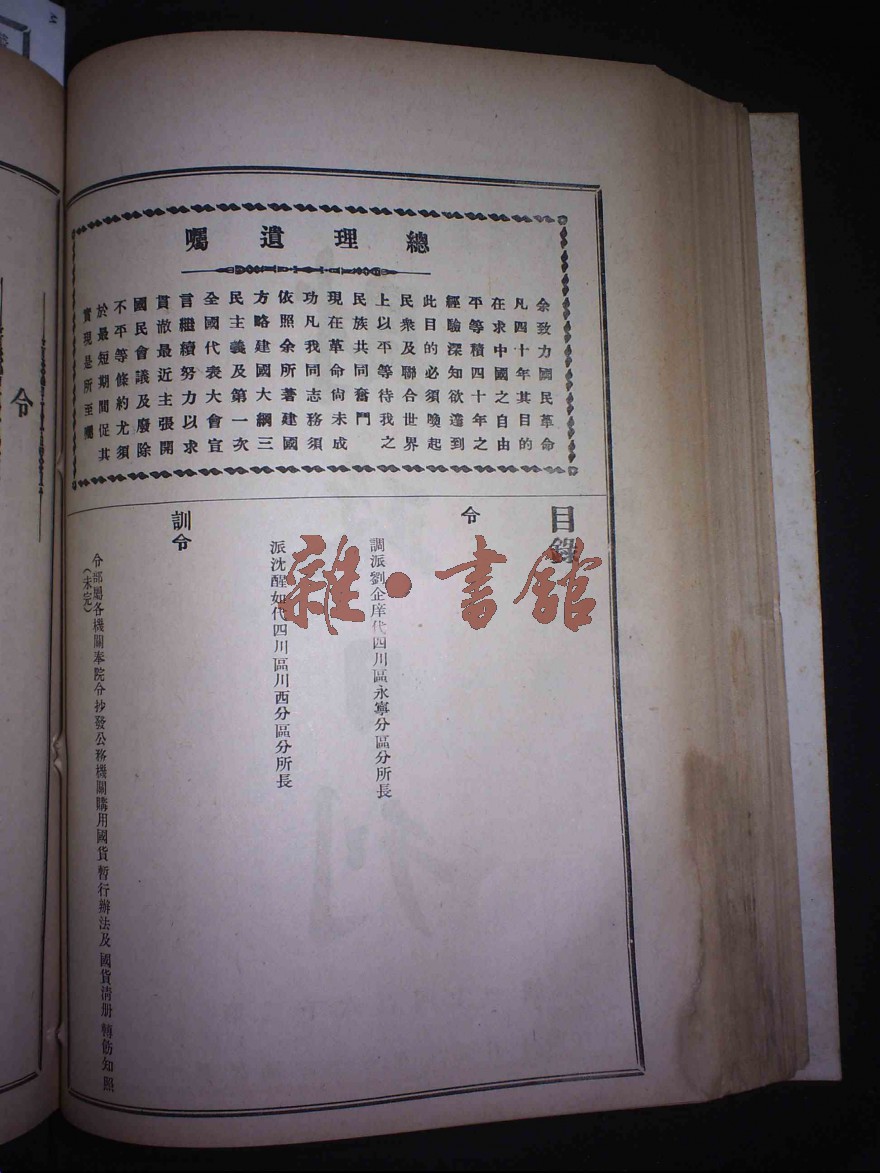 總理遺囑
余致力國民革命
凡四十年其目的
在求中國之自由
平等積四十年之
經驗深知欲達到
此目的必須喚起
民衆及聯合世界
上以平等待我之
民族共同奮鬥
現在革命尙未成
功凡我同志務須
依照余所著建國
方略建國大綱三
民主義及第一次
全國代表大會宣
言繼續努力以求
貫澈最近主張開
國民會議及廢除
不平等條約尤須
於最短期間促其
實現是所至囑
目錄
令
調派劉企庠代四川區永寧分區分所長
派沈醒如代四川區川西分區分所長
訓令
令部屬各機關奉院令抄發公務機關購用國貨暫行辦法及國貨淸册轉飭知照
(未完)
令
雜·書館